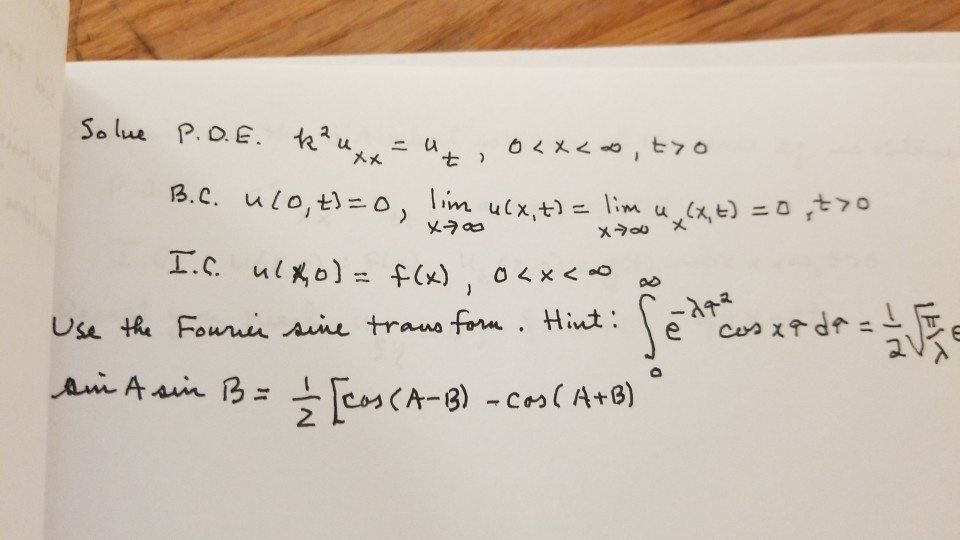 Solve P.D.E. k² u_xx = u_t , 0 < x < ∞ , t > 0
B.C. u(0,t) = 0, lim_{x→∞} u(x,t) = lim_{x→∞} u_x(x,t) = 0 , t > 0
I.C. u(x,0) = f(x) , 0 < x < ∞
Use the Fourier sine transform . Hint: ∫_0^∞ e^{-λα²} cos xα dα = 1/2 √(π/λ) e
sin A sin B = 1/2 [cos(A-B) - cos(A+B)